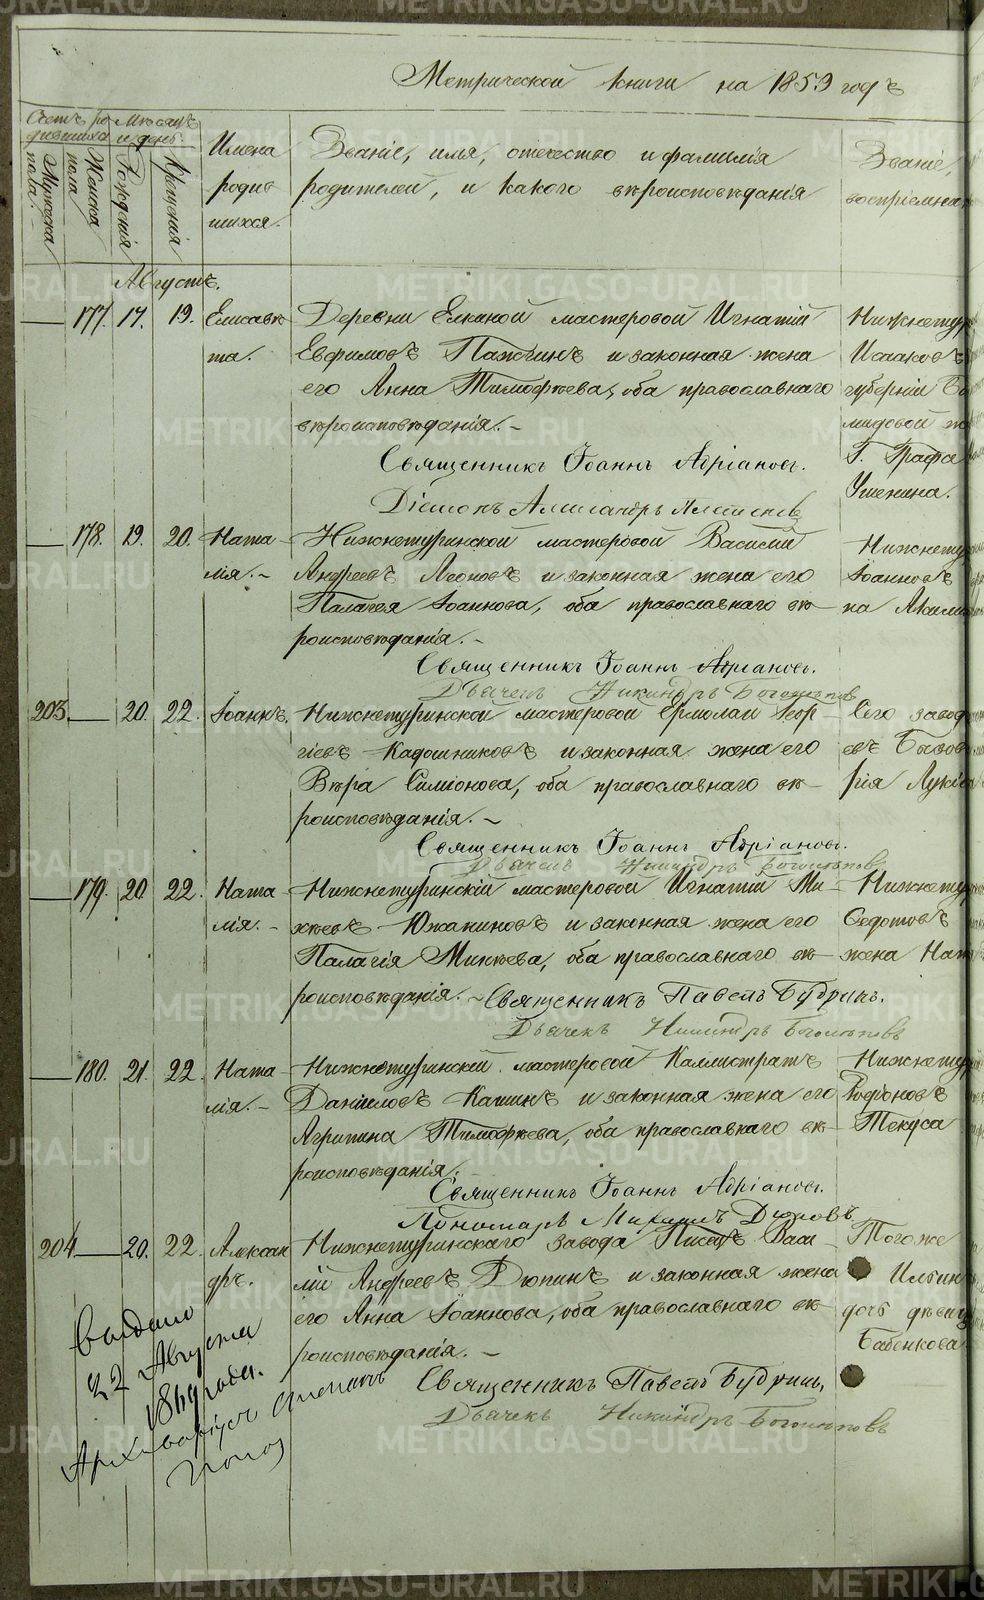 Метрической книги на 1859 годъ
Счетъ ро- Мѣсяцъ
дившихся и день.
Имена
родив
шихся.
Мужеска
пола.
Женска
пола
Рожденія
Крещенія
Званіе, имя, отечество и фамилія
родителей, и какого вѣроисповѣданія
Званіе,
воспріемни
Августъ.
177. 17. 19. Елисаве
та.
Деревни Елкиной мастеровой Игнатій
Евфимовъ и законная жена
его Анна Тимофѣева, оба православнаго
вѣроисповѣданія.-
Священникъ Іоаннъ Адріановъ.
Діаконъ Александръ
Нижнетур
Исааковъ
губерніи
мидовой
Г. Графа
178. 19. 20. Ната
лія.-
Нижнетуринской мастеровой Василій
Андреевъ Леоновъ и законная жена его
Палагея Іоаннова, оба православнаго вѣ-
роисповѣданія.-
Священникъ Іоаннъ Адріановъ.
Дьячекъ Никандръ
Нижнету
Іоанновъ
на
203. 20. 22. Іоаннъ.
Нижнетуринской мастеровой Ермолай Геор-
гіевъ Кадошниковъ и законная жена его
Вѣра Симіонова, оба православнаго вѣ-
роисповѣданія.-
Священникъ Іоаннъ Адріановъ.
Дьячекъ Никандръ
Сего завод
евъ
рія Лукі
179. 20. 22. Ната
лія.-
Нижнетуринскій мастеровой Игнатій Ми-
хѣевъ Южаниновъ и законная жена его
Палагія Михѣева, оба православнаго вѣ-
роисповѣданія.- Священникъ Павелъ Будринъ.
Дьячекъ Никандръ
Нижнету
Федотовъ
жена Нат
180. 21. 22. Ната
лія.-
Нижнетуринскій мастеровой Каллистратъ
Даніиловъ Кашинъ и законная жена его
Агрипина Тимофѣева, оба православнаго вѣ-
роисповѣданія.
Священникъ Іоаннъ Адріановъ.
Пономарь Михаилъ
Нижнету
Родіоновъ
Текуса
204 20. 22. Алексан
дръ.
Нижнетуринскаго завода Писецъ Васи-
лій Андреевъ Дюпинъ и законная жена
его Анна Іоаннова, оба православнаго вѣ-
роисповѣданія.-
Священникъ Павелъ Будринъ,
Дьячекъ Никандръ
Тогоже
Ильин
дочь дѣвиц
Бабенкова
Выдано
22 Августа
года.
METRIKI.GASO-URAL.RU